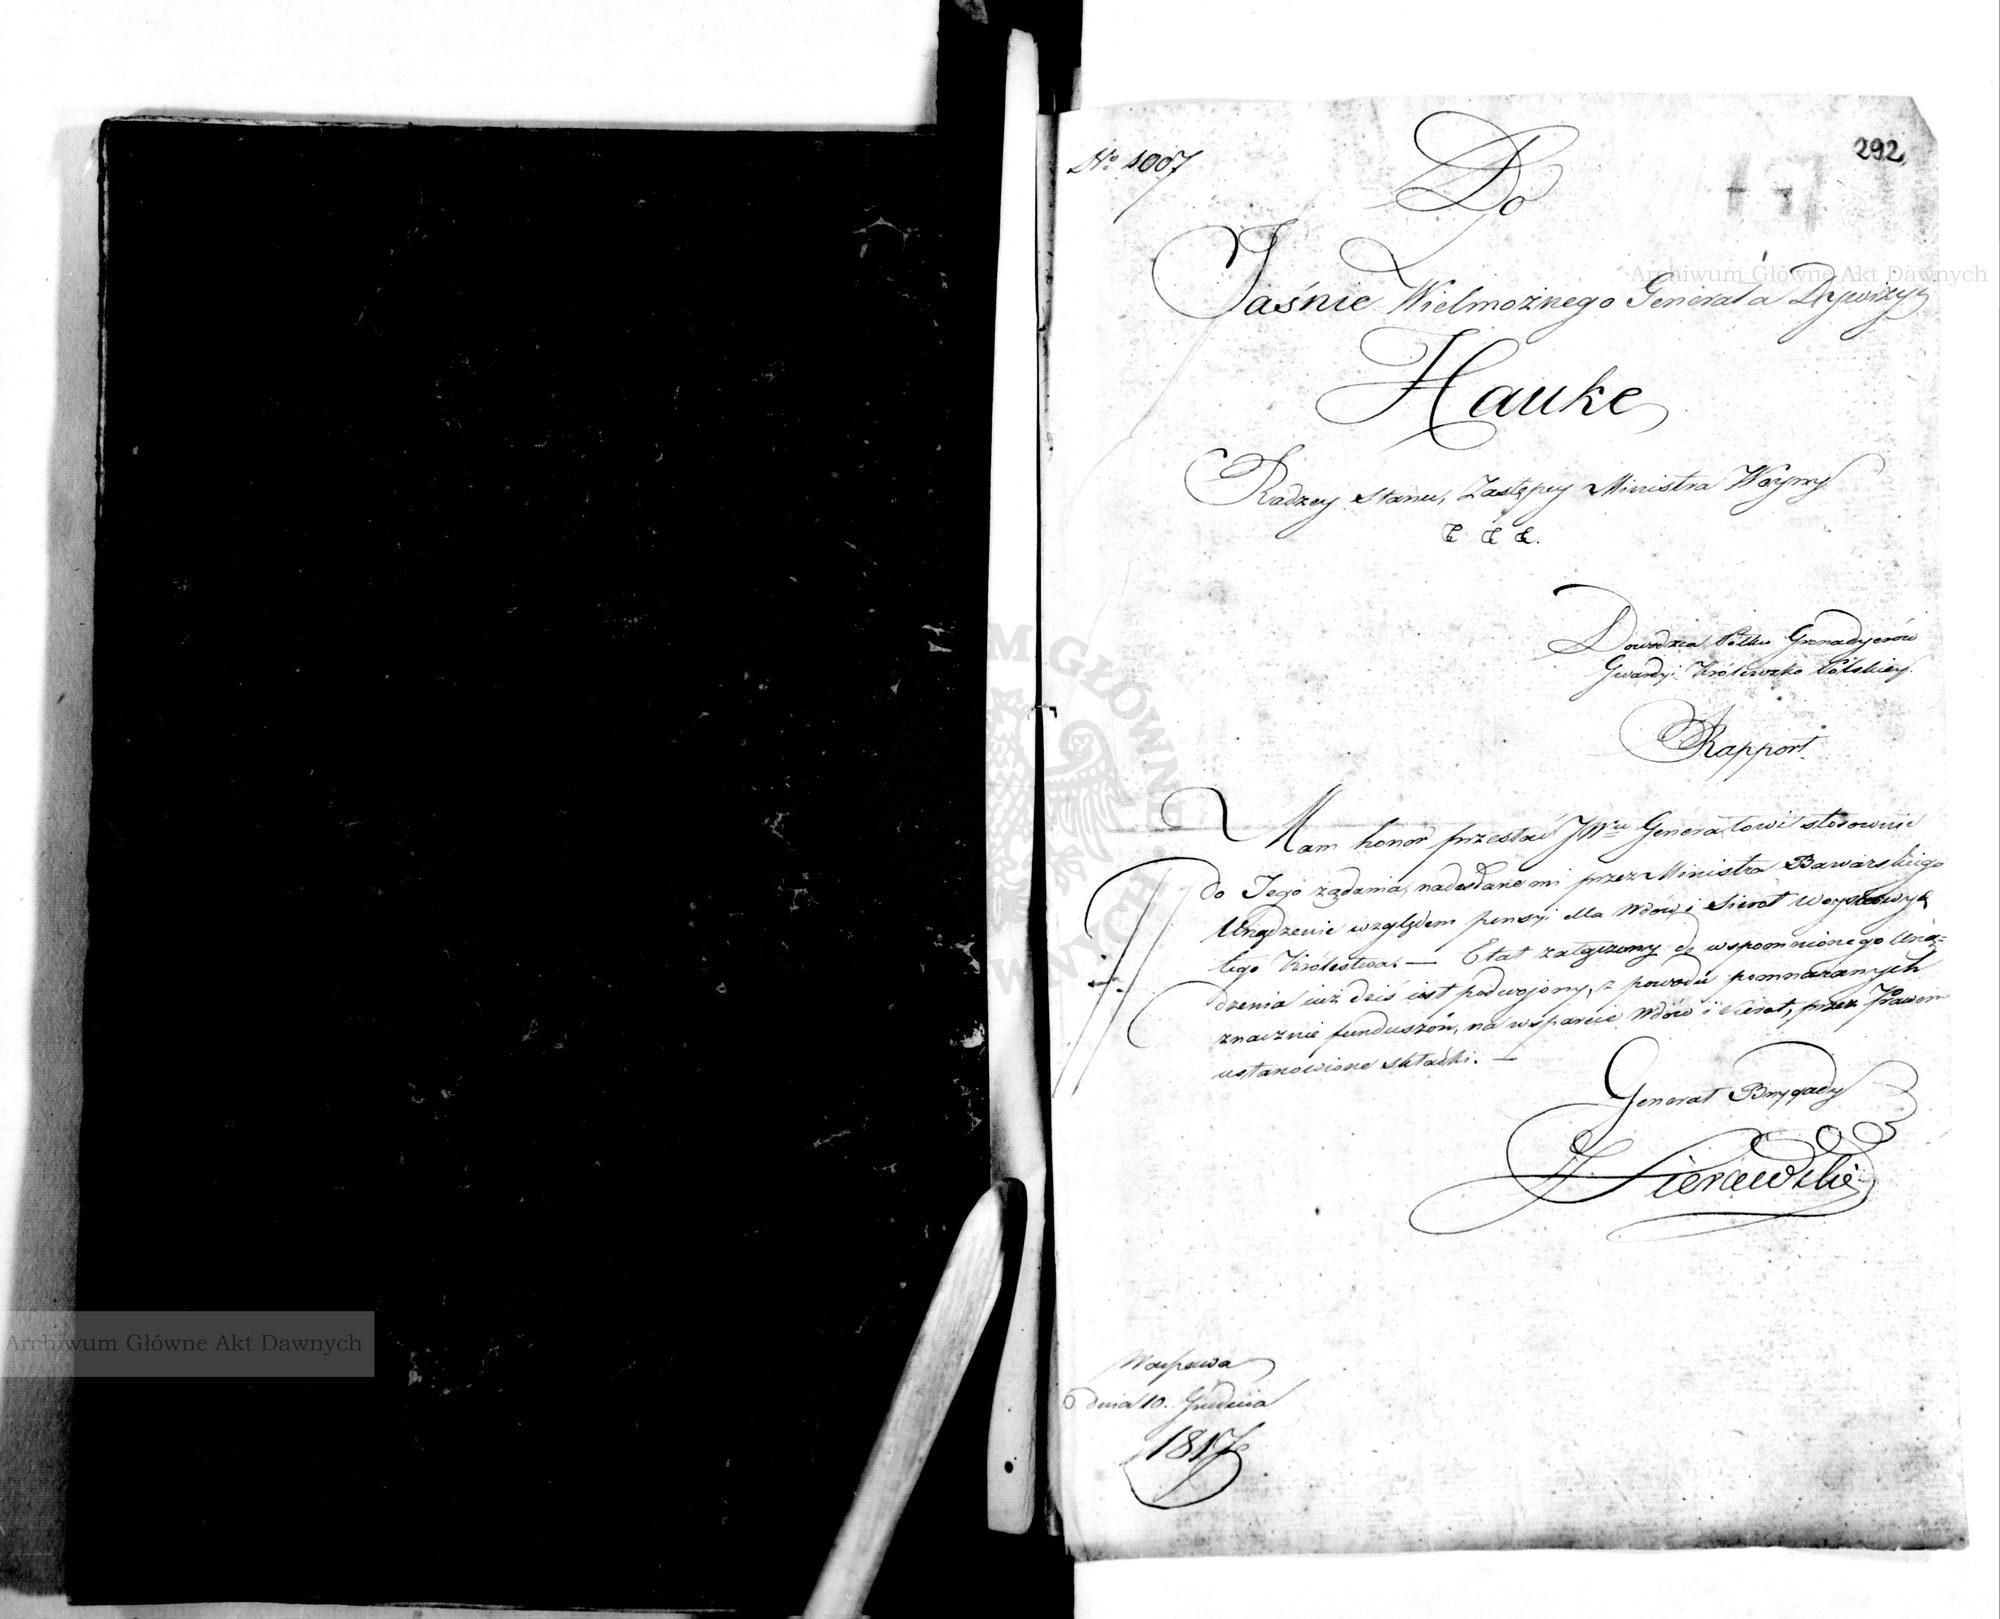 292
No 1007
Do
Jaśnie Wielmożnego Generała Dywizyi
Hauke
Radzcy Stanu, Zastępcy Ministra Woyny
& & &.
Dowódzca Pólku Grenadyerów
Gwardyi Królewsko Polskiey.
Rapport.
Mam honor przesłać JWu Generałowi stosownie
do Jego żądania, nadesłane mi przez Ministra Bawarskiego
Urządzenie względem pensyi dla Wdów i Sierot Woyskowych
tego Królestwa. — Etat załączony do wspomnionego Urzą=
dzenia iuż dziś iest podwojony, z powodu pomnażanych
znacznie funduszów, na wsparcie Wdów i Sierot, przez Prawem
ustanowione składki. —
Generał Brygady
Warszawa
dnia 10. Grudnia
1817
Archiwum Główne Akt Dawnych
Archiwum Główne Akt Dawnych